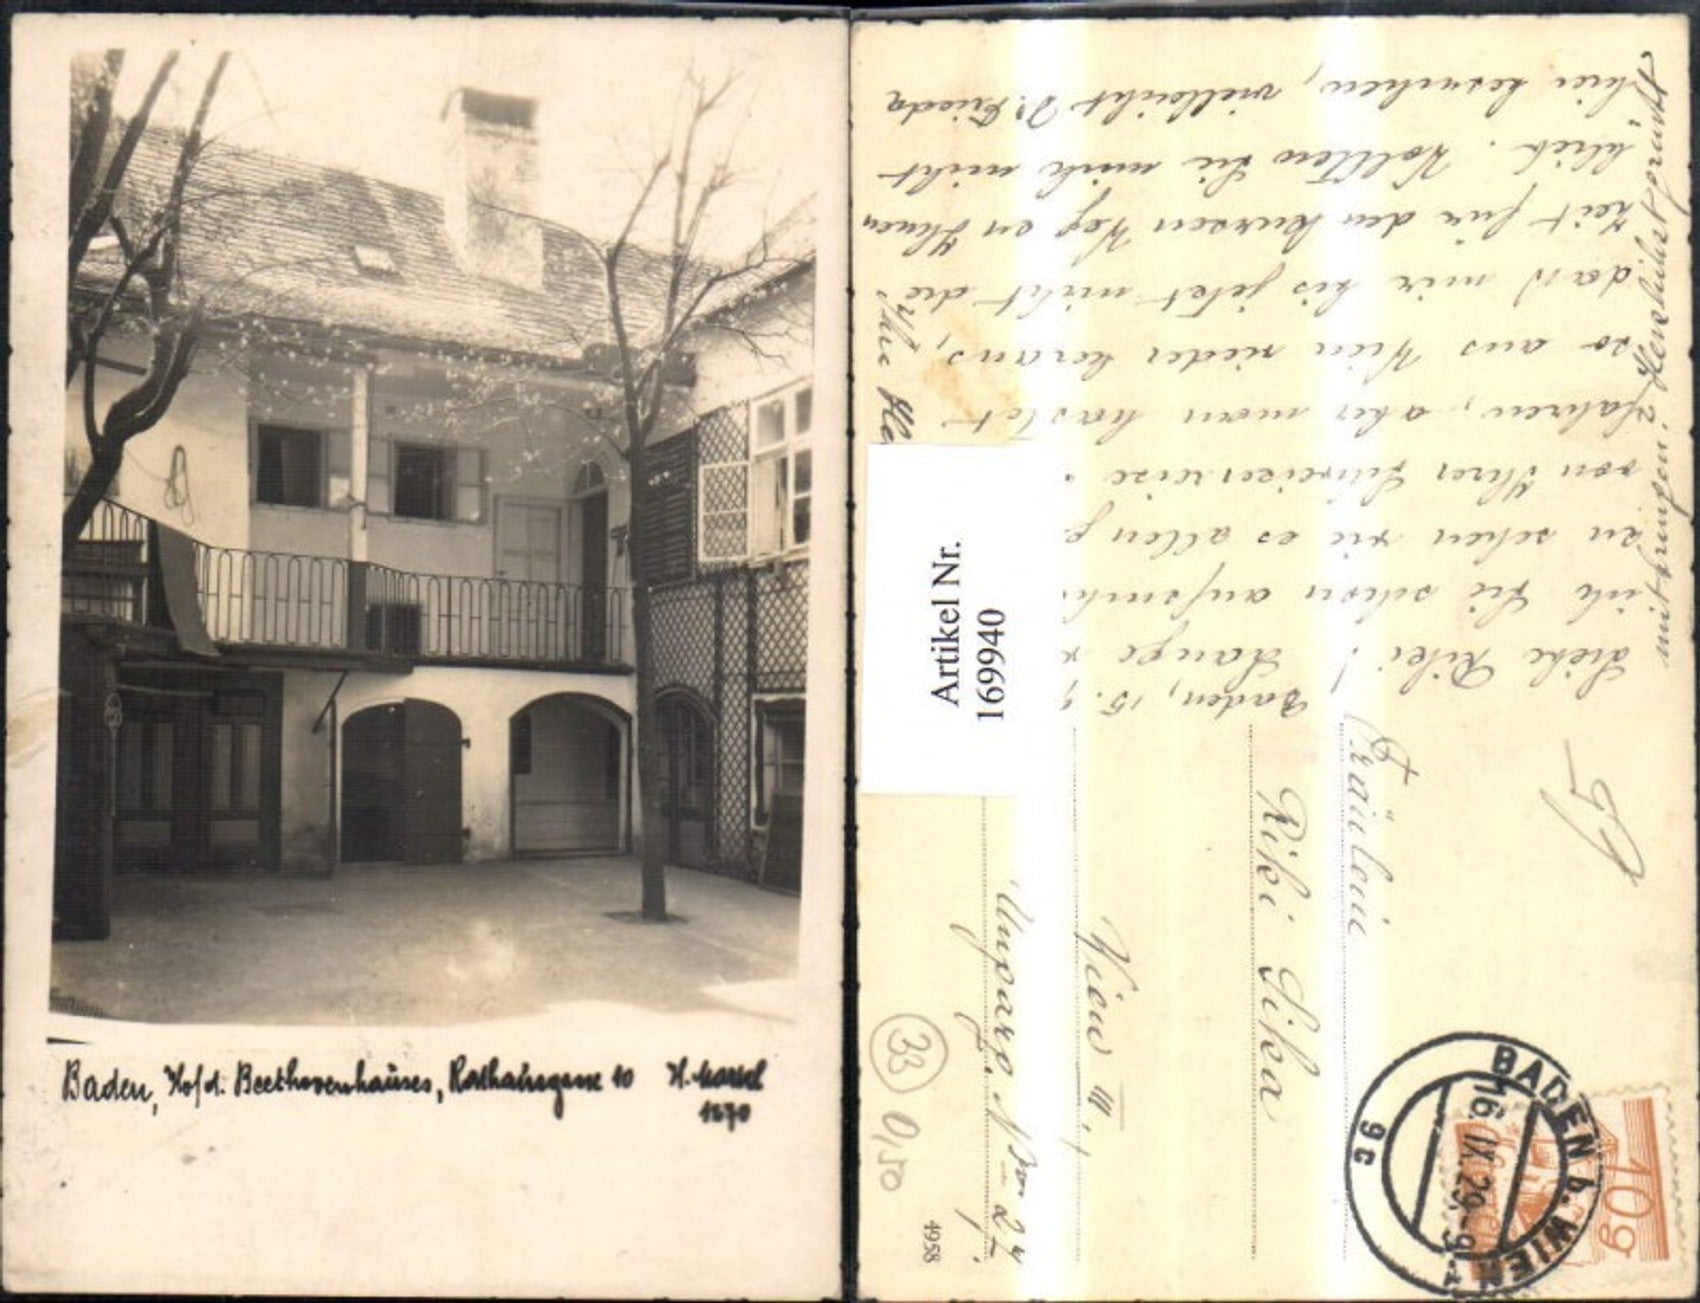 Baden, Hof d. Beethovenhauses, Rathausgasse 10
1270
Artikel Nr.
169940
Baden, 15.
Liebe Riki! Lange
ich Sie schon aufsuch
zu sehen wie es allen g
von Ihrer Schweizerreise
fahren, aber man hastet
so aus Wien wieder heraus,
dass mir bis jetzt nicht die
Zeit für den kurzen Weg zu Ihnen
blieb. Wollten Sie mich nicht
hier besuchen, vielleicht Frieda
mitbringen? Herzlichst grüsst
Ihre
Fräulein
Riki Lika
Wien III.,
Ungarg. No 27
33
0,50
4958
BADEN b. WIEN
16.IX.29.-9
9c
10g